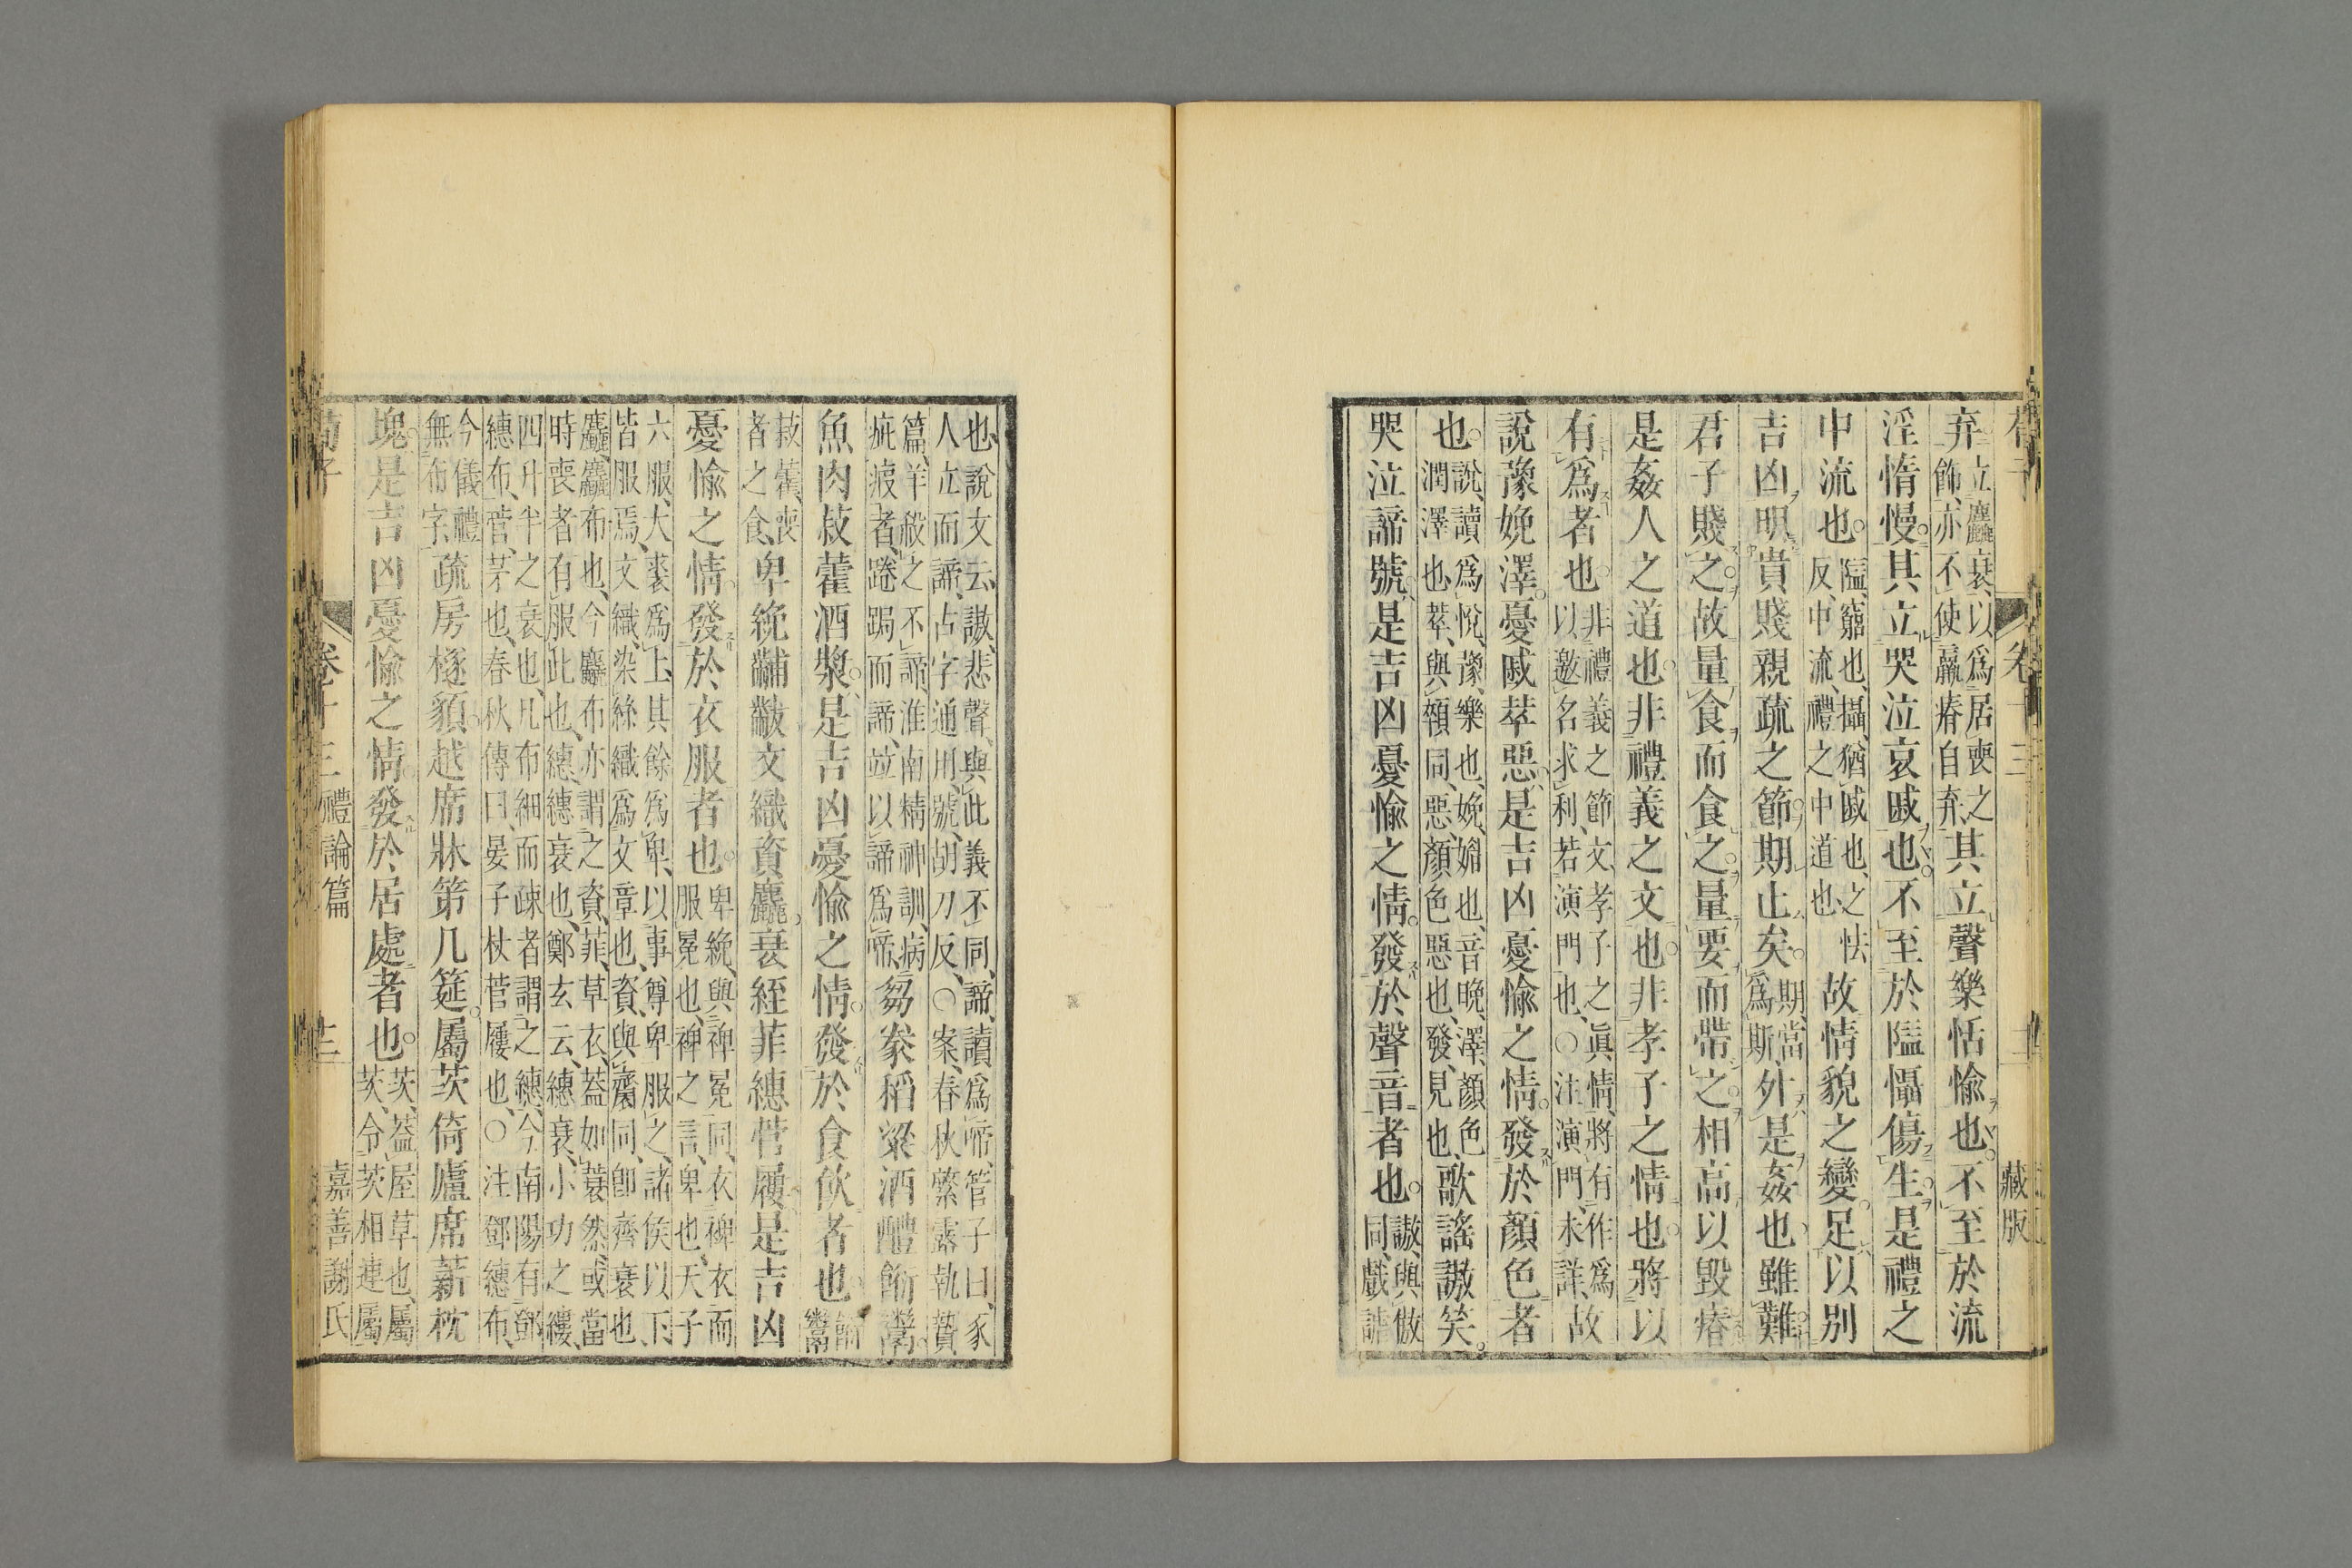 弃立麤衰以爲居喪之飾亦不使羸瘠自弃其立聲樂恬愉也不至於流
淫惰慢其立哭泣哀戚也不至於隘懾傷生是禮之
中流也隘窮也攝猶戚也之怯反中流禮之中道也故情貌之變足以別
吉凶明貴賤親疏之節期止矣期當爲斯外是姦也雖難
君子賤之故量食而食之量要而帶之相高以毀瘠
是姦人之道也非禮義之文也非孝子之情也將以
有爲者也非禮義之節文孝子之眞情將有作爲以邀名求利若演門也○注演門未詳故
說豫娩澤憂戚萃惡是吉凶憂愉之情發於顏色者
也說讀爲悅豫樂也娩媚也音晚澤顏色潤澤也萃與顇同惡顏色惡也發見也歌謠謸笑
哭泣諦號是吉凶憂愉之情發於聲音者也謸與傲同戲謔
也說文云謸悲聲與此義不同諦讀爲啼管子曰豕人立而諦古字通用號胡刀反○案春秋繁露執贄
篇羊殺之不諦淮南精神訓病疵瘕者踡跼而諦竝以諦爲啼芻豢稻粱酒醴餰鬻
魚肉菽藿酒漿是吉凶憂愉之情發於食飮者也餰鬻
菽藿喪者之食卑絻黼黻文織資麤衰絰菲繐菅屨是吉凶
憂愉之情發於衣服者也卑絻與裨冕同衣裨衣而服冕也裨之言卑也天子
六服大裘爲上其餘爲卑以事尊卑服之諸侯以下皆服焉文織染絲織爲文章也資與齎同卽齊衰也
麤麤布也今麤布亦謂之資菲草衣蓋如蓑然或當時喪者有服此也繐繐衰也鄭玄云繐衰小功之縷
四升半之衰也凡布細而疎者謂之繐今南陽有鄧繐布菅茅也春秋傳曰晏子杖菅屨也○注鄧繐布
今儀禮無布字疏房檖䫉越席牀笫几筵屬茨倚廬席薪枕
塊是吉凶憂愉之情發於居處者也茨蓋屋草也屬茨令茨相連屬
卷十三
藏版
荀子
卷十三 禮論篇
十三
嘉善謝氏